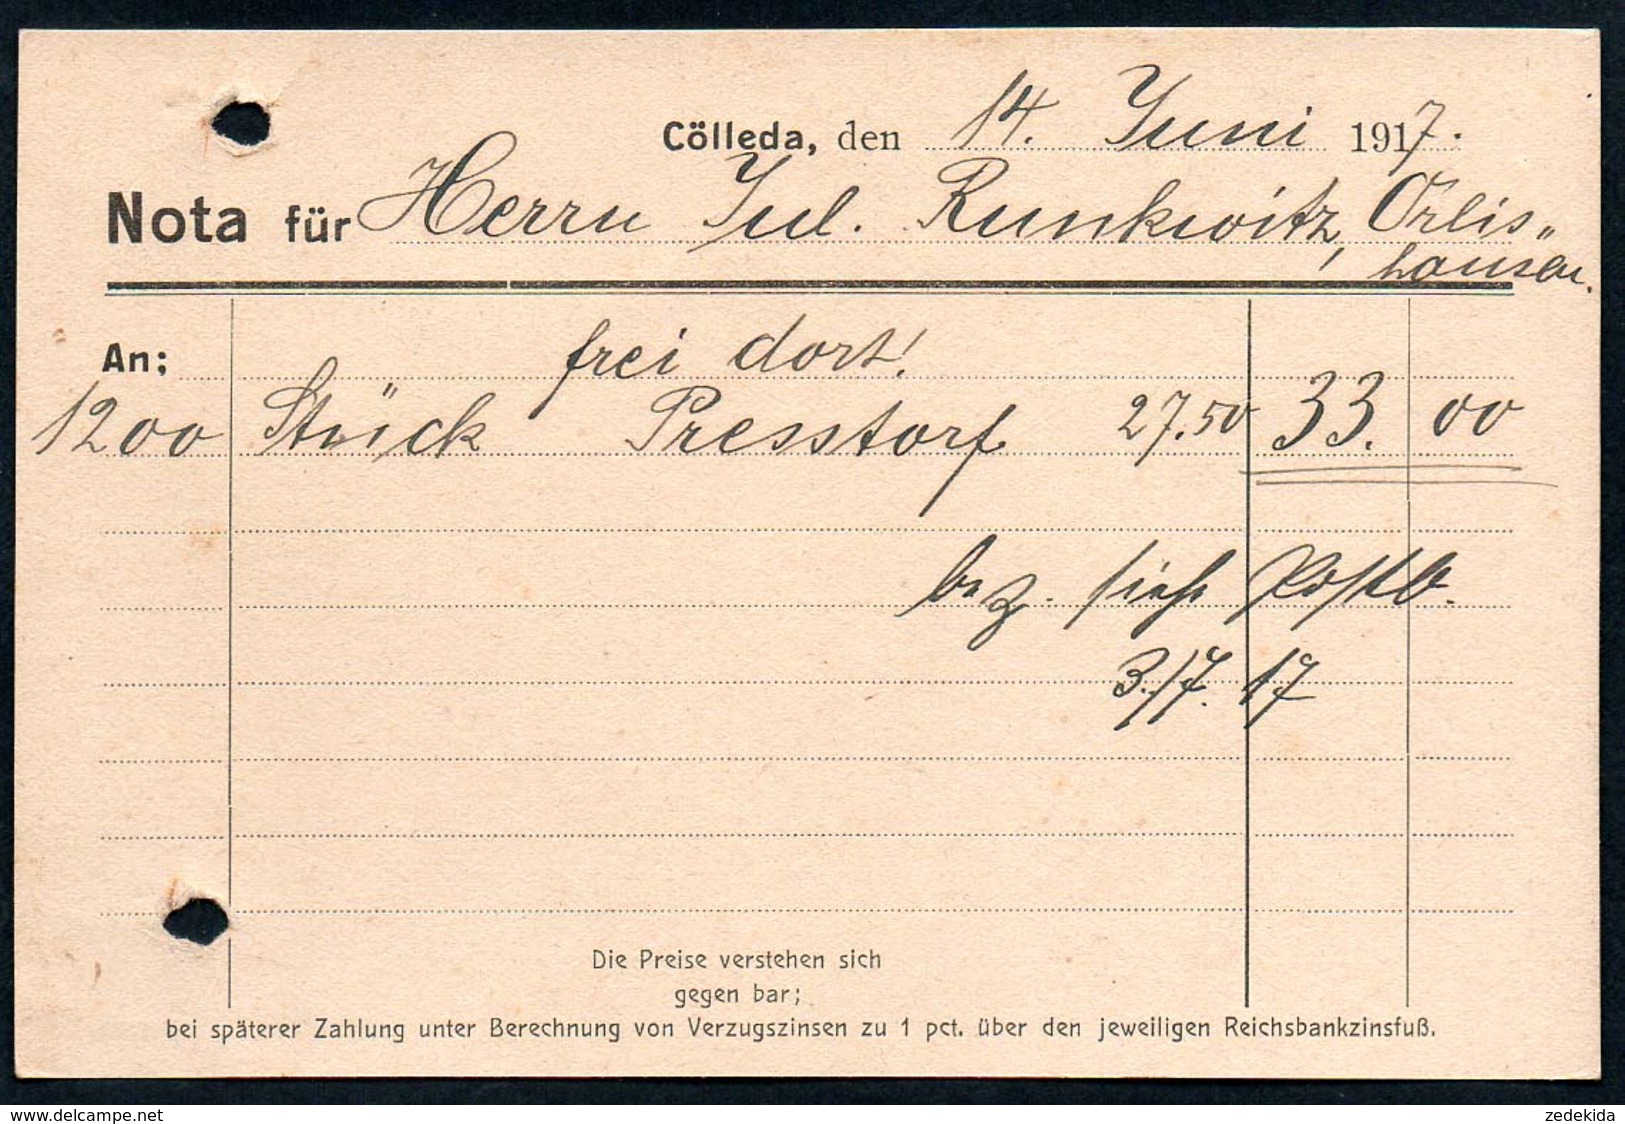 Cölleda, den 14. Juni 1917.
Nota für Herrn Jul. Runkwitz, Orlis„
hausen.
An; frei dort!
1200 Stück Presstorf 27.50 33. 00
bez. siehe Postb.
3./7. 17
Die Preise verstehen sich
gegen bar;
bei späterer Zahlung unter Berechnung von Verzugszinsen zu 1 pct. über den jeweiligen Reichsbankzinsfuß.
www.delcampe.net zedekida